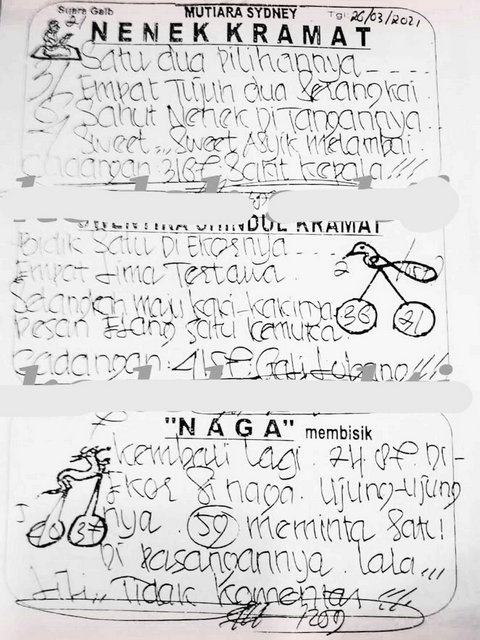 Suara Gaib MUTIARA SYDNEY Tgl: 26/03/2021
NENEK KRAMAT
Satu dua pilihannya
Empat Tujuh dua Setangkai
Sahut Nenek Di Tangannya
Sweet,,, Sweet Asyik melambai
Cadangan: 3187 Sakit Kepala !!!
KRAMAT
Bidik Satu Di Ekornya
Empat Lima Tertawa
2
Setangkah maju kaki-kakinya
36 31
Pesan Elang Satu kemuka
Cadangan: 4187. Gali Lubang !!!
"NAGA" membisik
kembali Lagi. 74 87. Di-
Ekor Si naga. Ujung-Ujung
nya. 59 meminta Satu!
40 37
Di Pasangannya. Lala,,,
Lili,,, Tidak Komentar !!!
1259